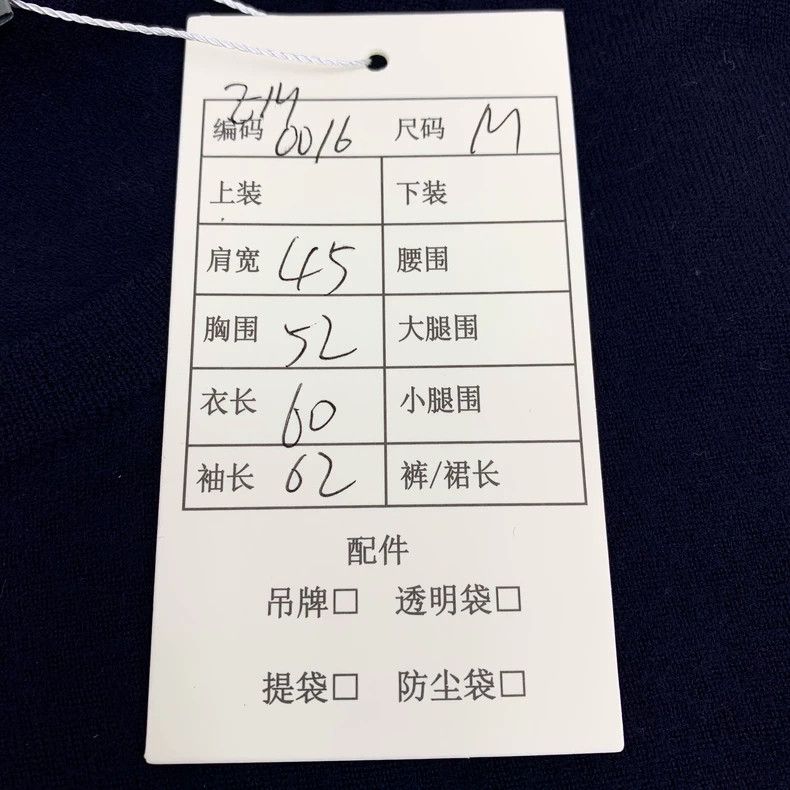 Z-14
编码 0016 尺码 M
上装 下装
肩宽 45 腰围
胸围 52 大腿围
衣长 60 小腿围
袖长 62 裤/裙长
配件
吊牌□ 透明袋□
提袋□ 防尘袋□